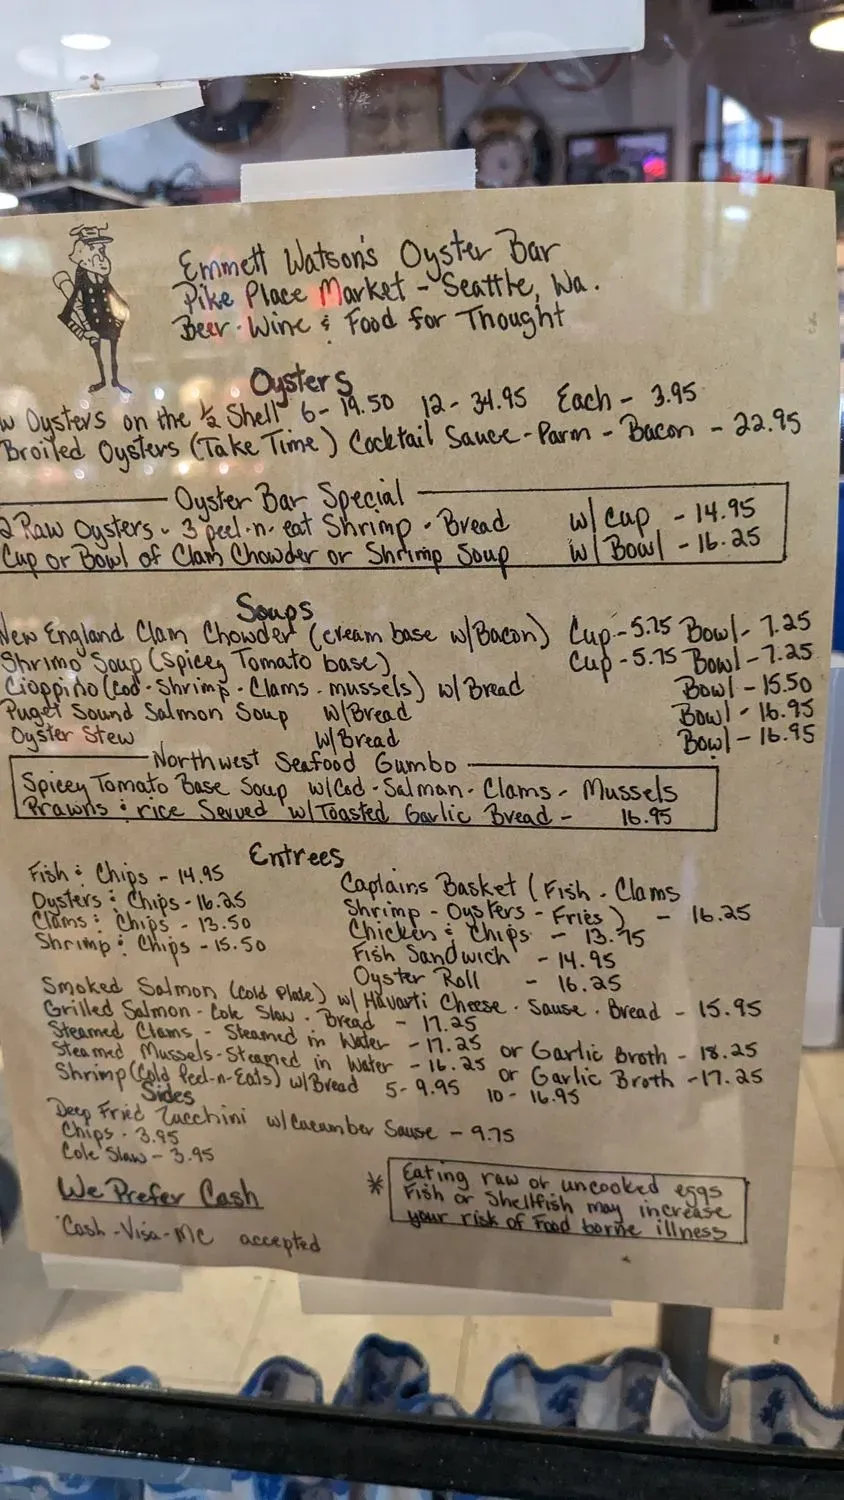 Emmett Watson's Oyster Bar
Pike Place Market - Seattle, Wa.
Beer · Wine & Food for Thought
Oysters
w Oysters on the ½ Shell 6- 19.50 12- 34.95 Each - 3.95
Broiled Oysters (Take Time) Cocktail Sauce - Parm - Bacon - 22.95
Oyster Bar Special
2 Raw Oysters - 3 peel-n-eat Shrimp - Bread w/ Cup - 14.95
Cup or Bowl of Clam Chowder or Shrimp Soup w/ Bowl - 16.25
Soups
New England Clam Chowder (cream base w/Bacon) Cup - 5.75 Bowl - 7.25
Shrimp Soup (Spicey Tomato base) Cup - 5.75 Bowl - 7.25
Cioppino (Cod - Shrimp - Clams - mussels) w/ Bread Bowl - 15.50
Puget Sound Salmon Soup w/Bread Bowl - 16.95
Oyster Stew w/Bread Bowl - 16.95
Northwest Seafood Gumbo
Spicey Tomato Base Soup w/Cod - Salmon - Clams - Mussels
Prawns & rice Served w/Toasted Garlic Bread - 16.95
Entrees
Fish & Chips - 14.95
Oysters & Chips - 16.25
Clams & Chips - 13.50
Shrimp & Chips - 15.50
Captains Basket (Fish - Clams
Shrimp - Oysters - Fries) - 16.25
Chicken & Chips - 13.75
Fish Sandwich - 14.95
Oyster Roll - 16.25
Smoked Salmon (Cold Plate) w/ Havarti Cheese - Sause - Bread - 15.95
Grilled Salmon - Cole Slaw - Bread - 17.25
Steamed Clams - Steamed in Water - 17.25 or Garlic Broth - 18.25
Steamed Mussels - Steamed in Water - 16.25 or Garlic Broth - 17.25
Shrimp (Cold Peel-n-Eats) w/Bread 5- 9.95 10- 16.95
Sides
Deep Fried Zucchini w/Cucumber Sause - 9.75
Chips - 3.95
Cole Slaw - 3.95
We Prefer Cash
Cash - Visa - MC accepted
* Eating raw or uncooked eggs
Fish or Shellfish may increase
your risk of Food borne illness